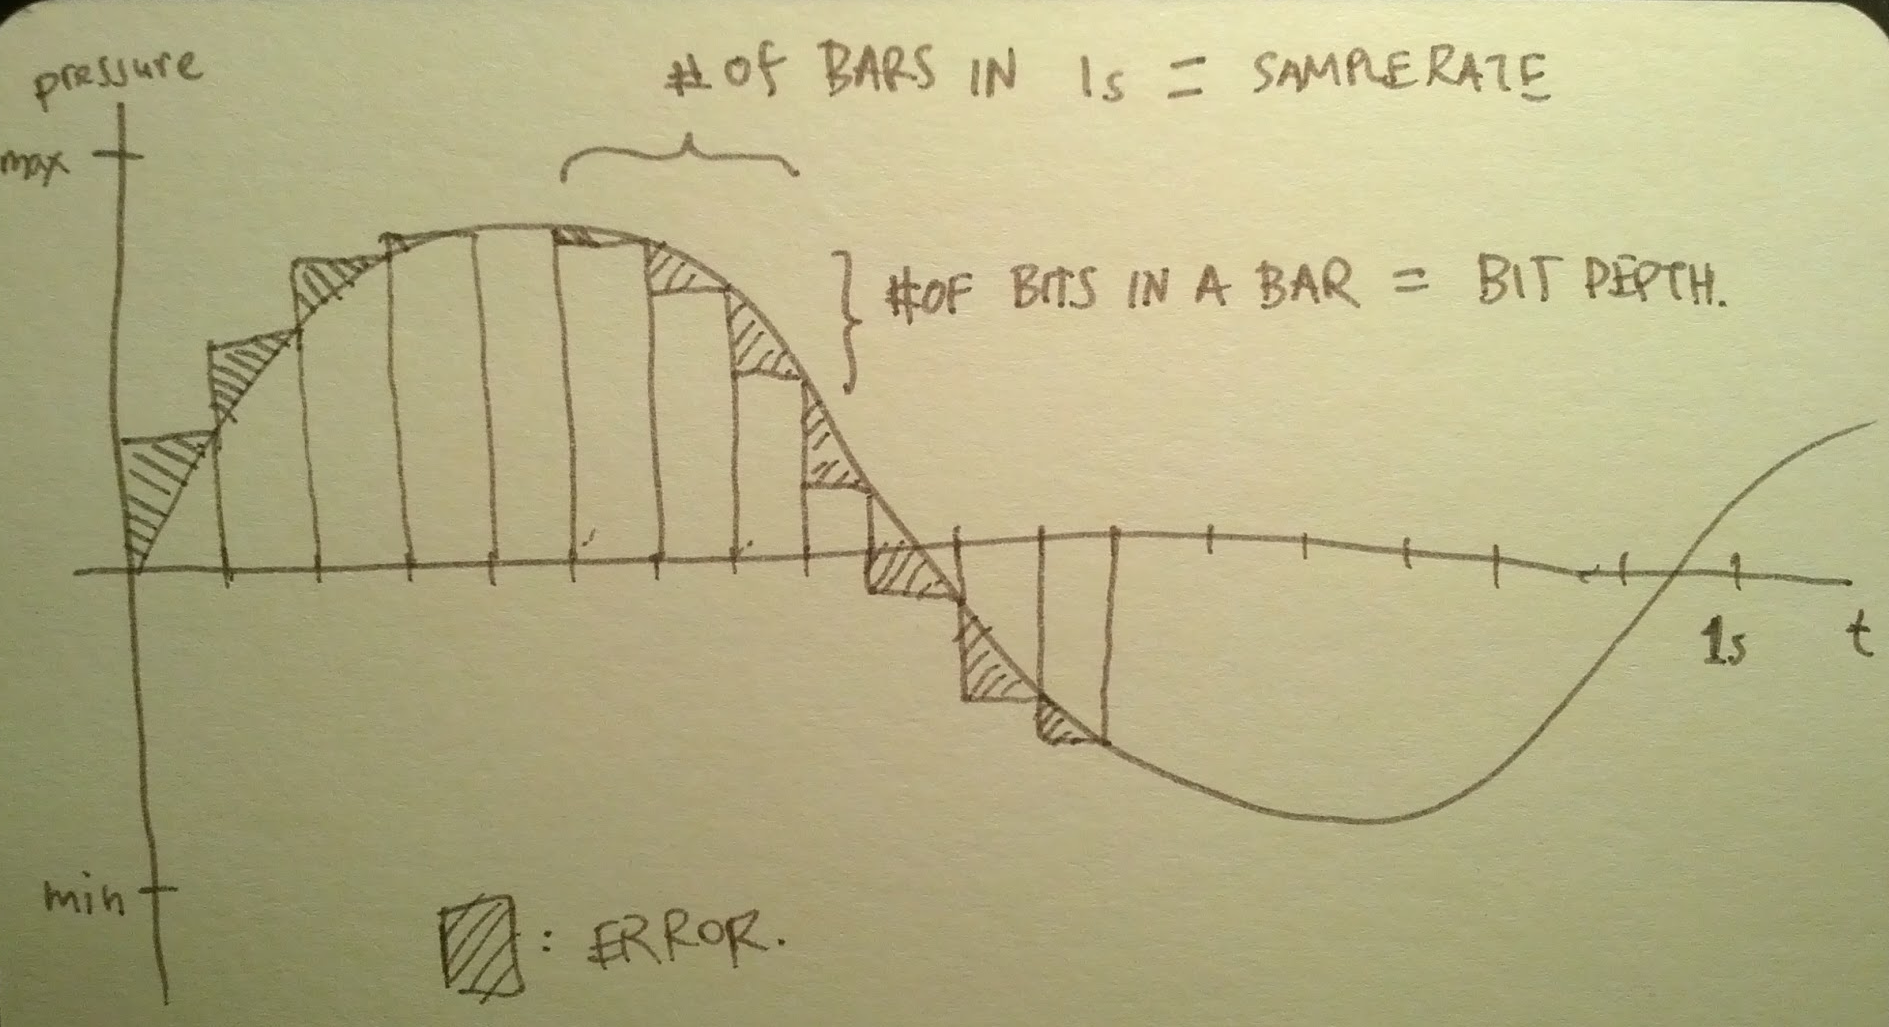 pressure
# OF BARS IN 1s = SAMPLERATE
max
# OF BITS IN A BAR = BIT DEPTH.
1s
t
min
: ERROR.